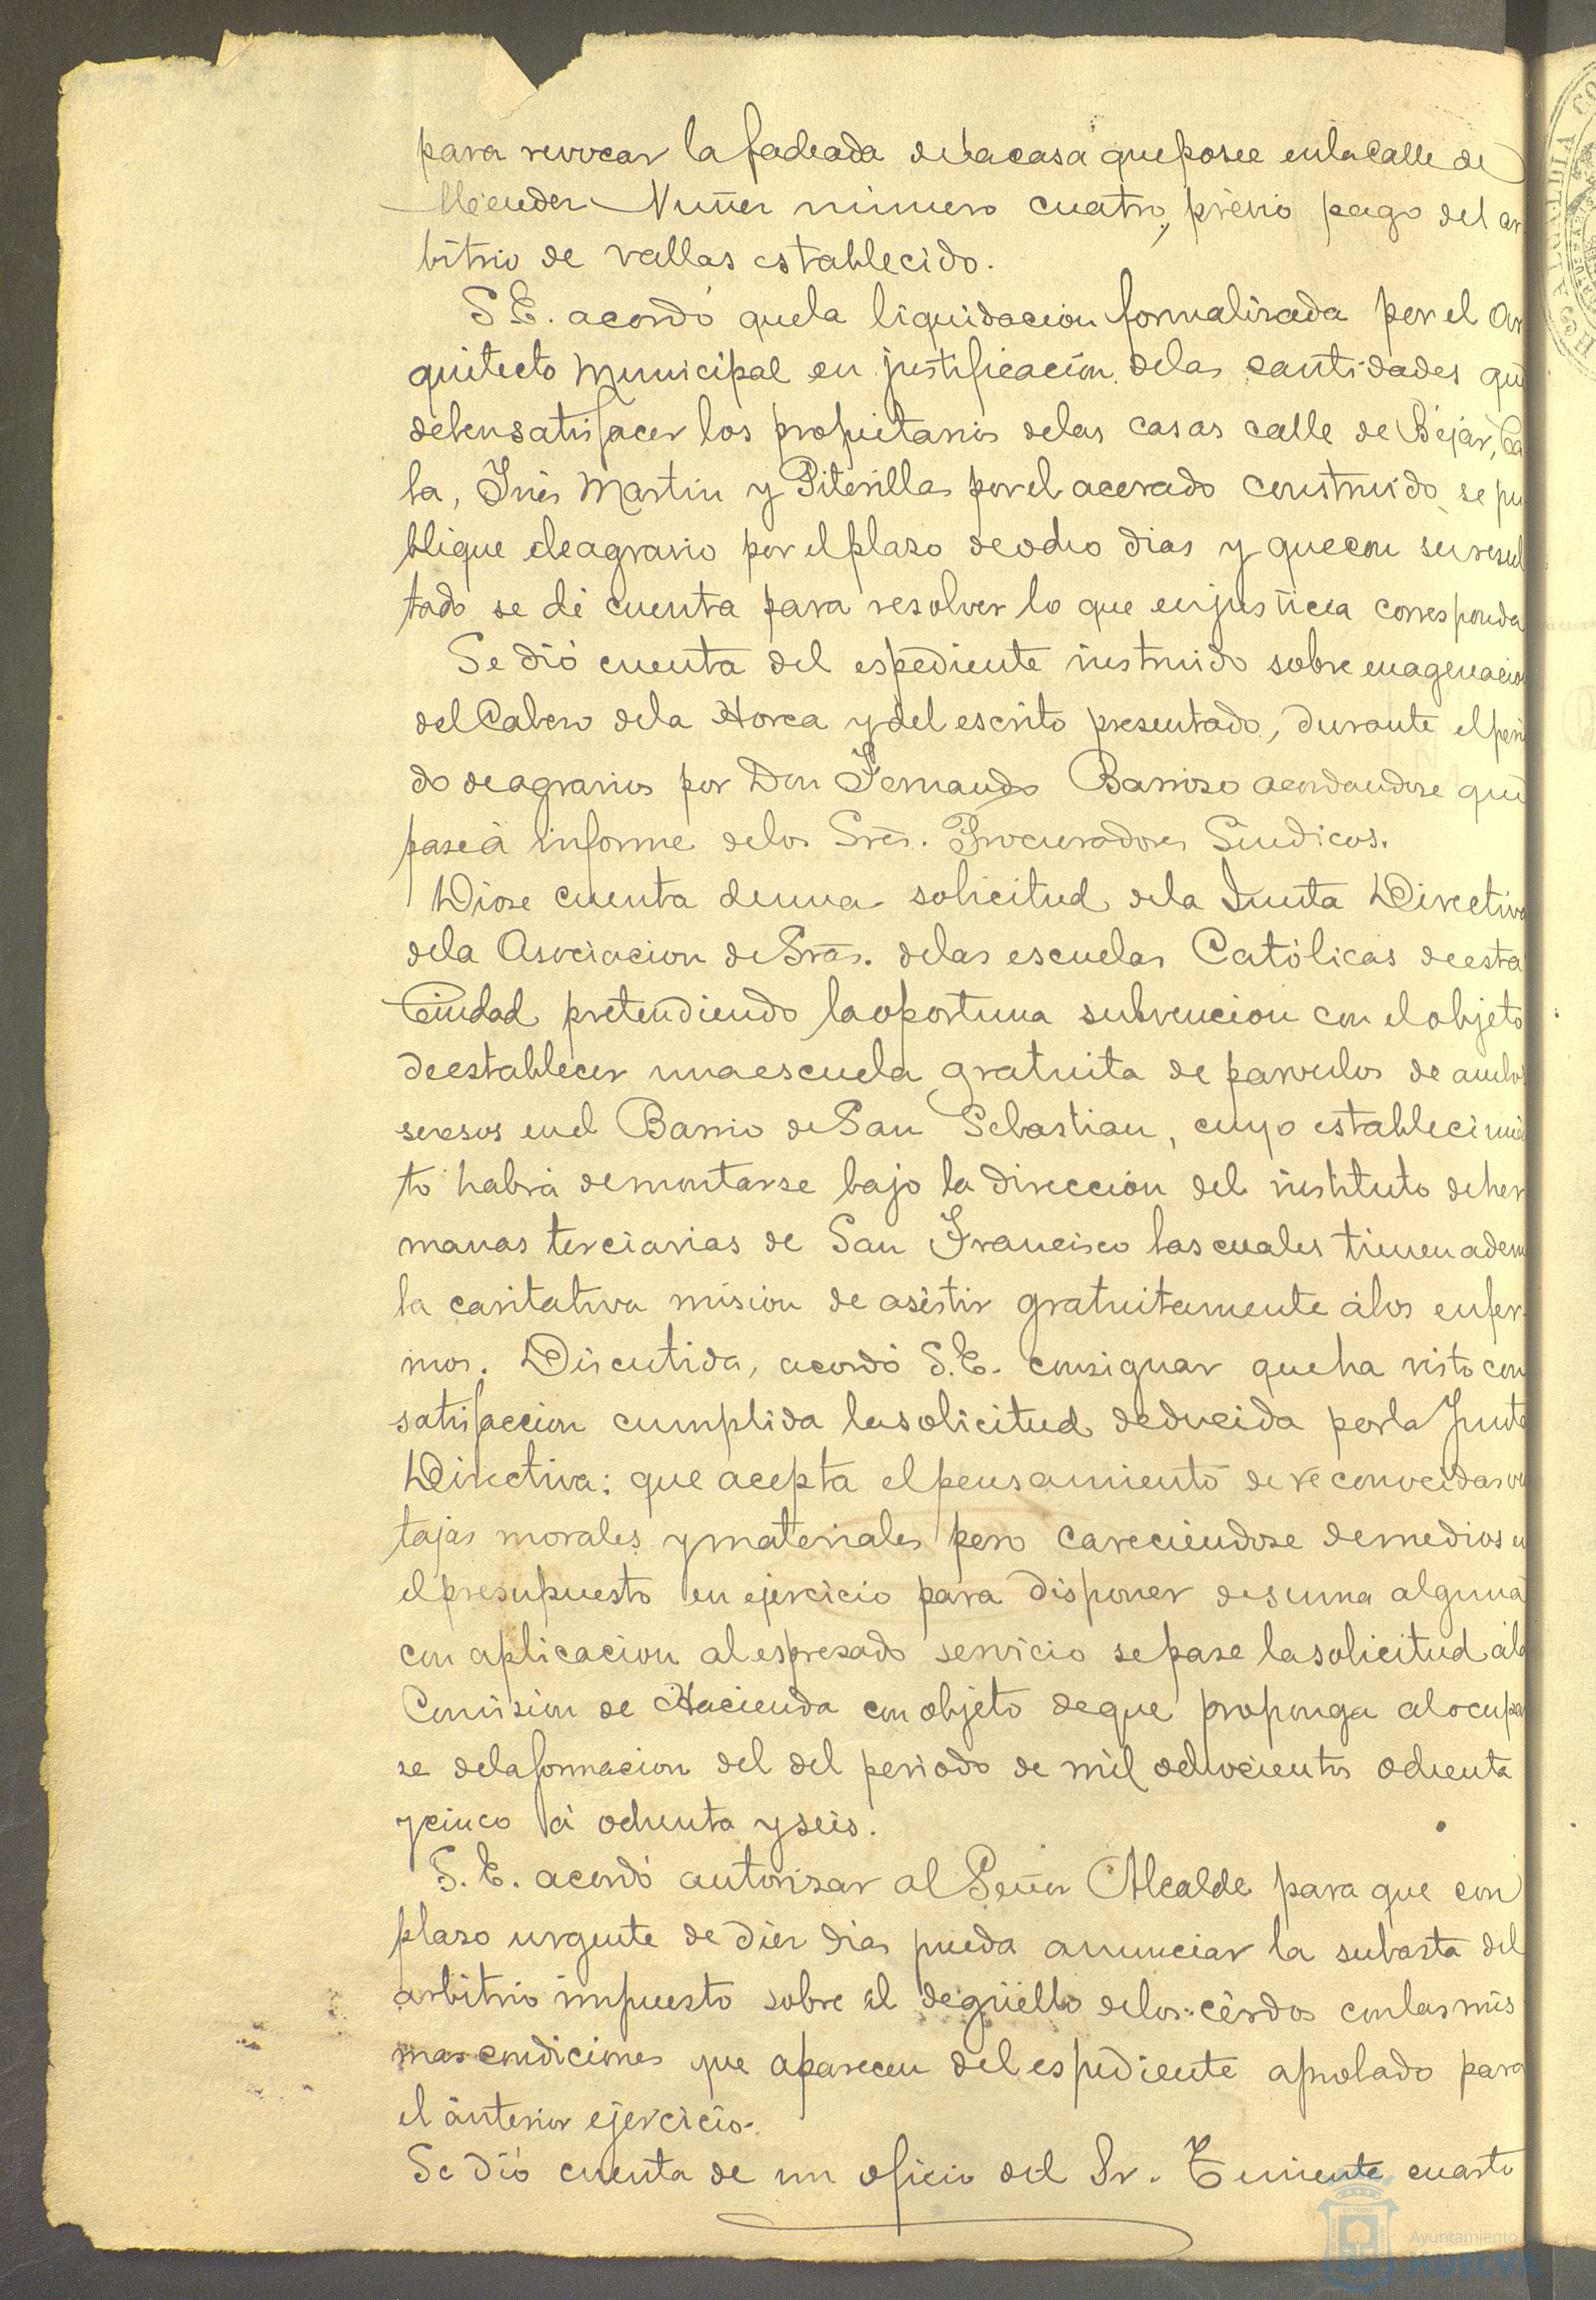 para revocar la fachada de la casa que posee en la Calle de
Mendez Nuñez número cuatro, prévio pago del ar
bitrio de vallas establecido.
S. E. acordó que la liquidacion formalizada por el Ar
quitecto Municipal en justificacion de las cantidades que
deben satisfacer los propietarios de las casas calle de Béjar, Ca
la, Inés Martin y Piterilla por el acerado construido se pu
blique de agravio por el plazo de ocho dias y que con su resul
tado se dé cuenta para resolver lo que en justicia corresponda
Se dió cuenta del espediente instruido sobre enagenacion
del Cabezo de la Horca y del escrito presentado, durante el peri
do de agravios por Don Fernando Barroso acordandose que
pase á informe de los Sres. Procuradores Síndicos.
Diose cuenta de una solicitud de la Junta Directiva
de la Asociacion de Sras. de las escuelas Católicas de esta
Ciudad pretendiendo la oportuna subvencion con el objeto
de establecer una escuela gratuita de parvulos de ambos
sexsos en el Barrio de San Sebastian, cuyo establecimien
to habrá de montarse bajo la direccion del instituto de her
manas terciarias de San Francisco las cuales tienen adem
la caritativa mision de asistir gratuitamente á los enfer
mos. Discutida, acordó S. E. consignar que ha visto con
satisfaccion cumplida la solicitud deducida por la Junta
Directiva: que acepta el pensamiento de reconocidas ven
tajas morales y materiales pero careciendose de medios en
el presupuesto en ejercicio para disponer de suma alguna
con aplicacion al espresado servicio se pase la solicitud á la
Comision de Hacienda con objeto de que proponga al ocupar
se de la formacion del del periodo de mil ochocientos ochenta
y cinco á ochenta y seis.
S. E. acordó autorizar al Señor Alcalde para que con
plazo urgente de diez dias pueda anunciar la subasta del
arbitrio impuesto sobre el degüello de los cérdos con las mis
mas condiciones que aparecen del espediente aprobado para
el anterior ejercicio.
Se dió cuenta de un oficio del Sr. Teniente cuarto
ALCALDIA CO
Ayuntamiento de
HUELVA